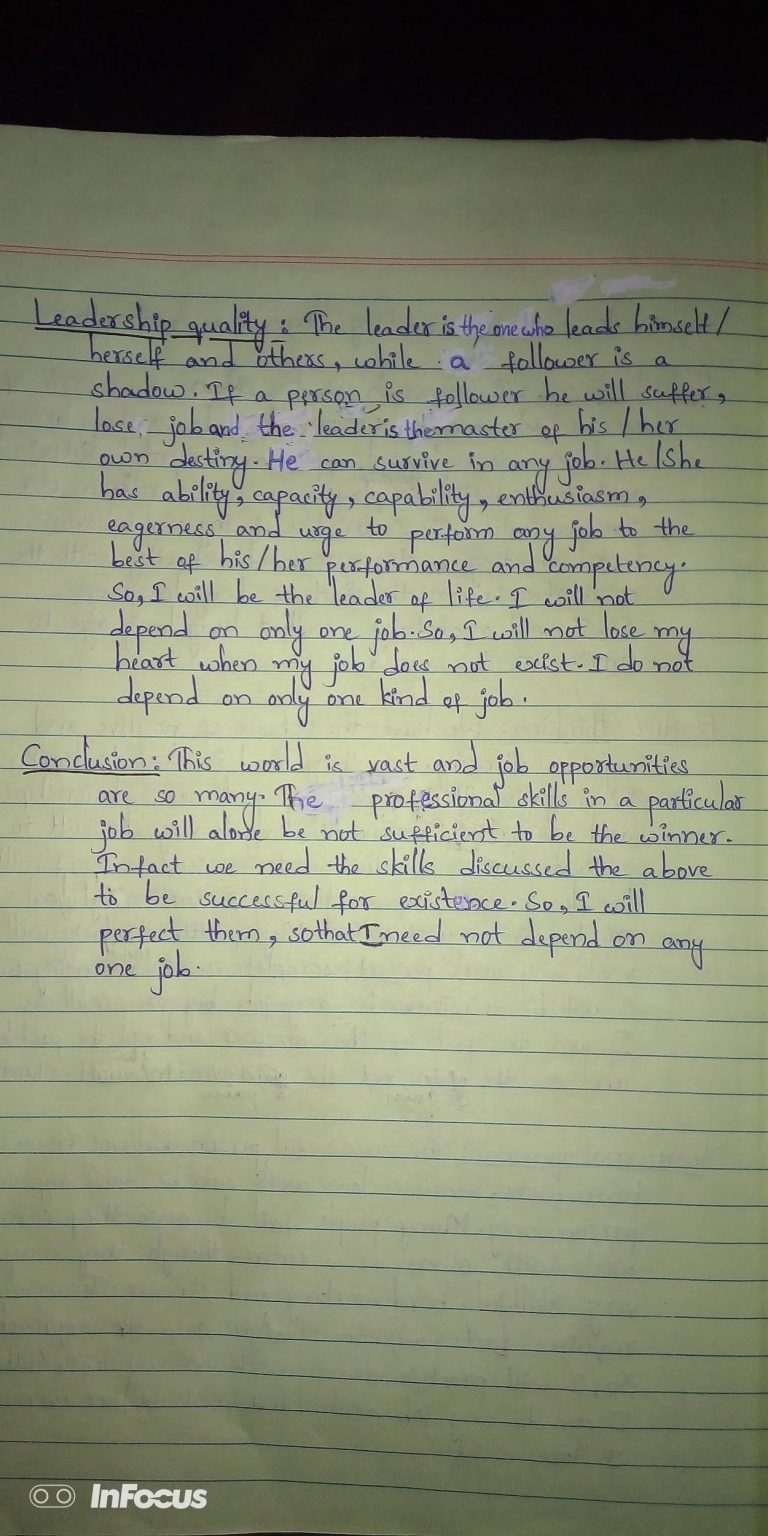 Leadership quality : The leader is the one who leads himself /
herself and others, while a follower is a
shadow. If a person is follower he will suffer,
lose job and the leader is the master of his / her
own destiny. He can survive in any job. He/She
has ability, capacity, capability, enthusiasm,
eagerness and urge to perform any job to the
best of his/her performance and competency.
So, I will be the leader of life. I will not
depend on only one job. So, I will not lose my
heart when my job does not exist. I do not
depend on only one kind of job.
Conclusion: This world is vast and job opportunities
are so many. The professional skills in a particular
job will alone be not sufficient to be the winner.
Infact we need the skills discussed the above
to be successful for existence. So, I will
perfect them, sothat I need not depend on any
one job.
InFocus